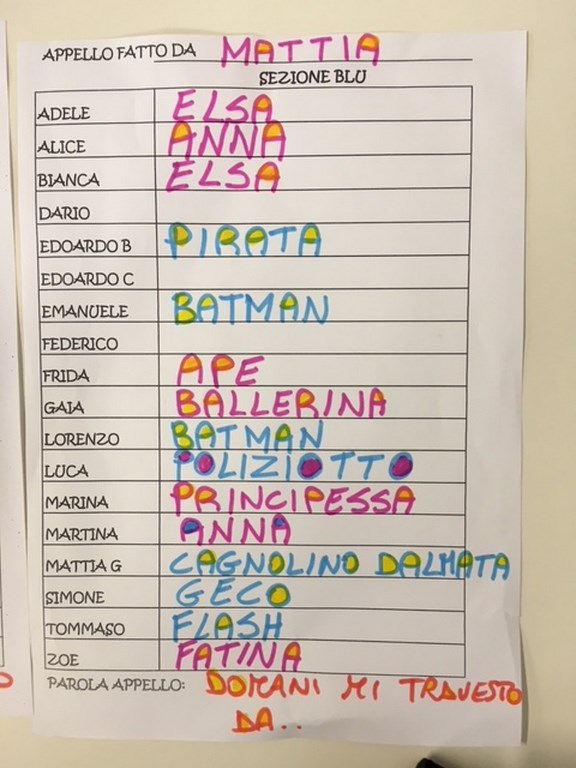 APPELLO FATTO DA MATTIA
SEZIONE BLU
ADELE ELSA
ALICE ANNA
BIANCA ELSA
DARIO
EDOARDO B PIRATA
EDOARDO C
EMANUELE BATMAN
FEDERICO
FRIDA APE
GAIA BALLERINA
LORENZO BATMAN
LUCA POLIZIOTTO
MARINA PRINCIPESSA
MARTINA ANNA
MATTIA G CAGNOLINO DALMATA
SIMONE GECO
TOMMASO FLASH
ZOE FATINA
PAROLA APPELLO: DOMANI MI TRAVESTO
DA..